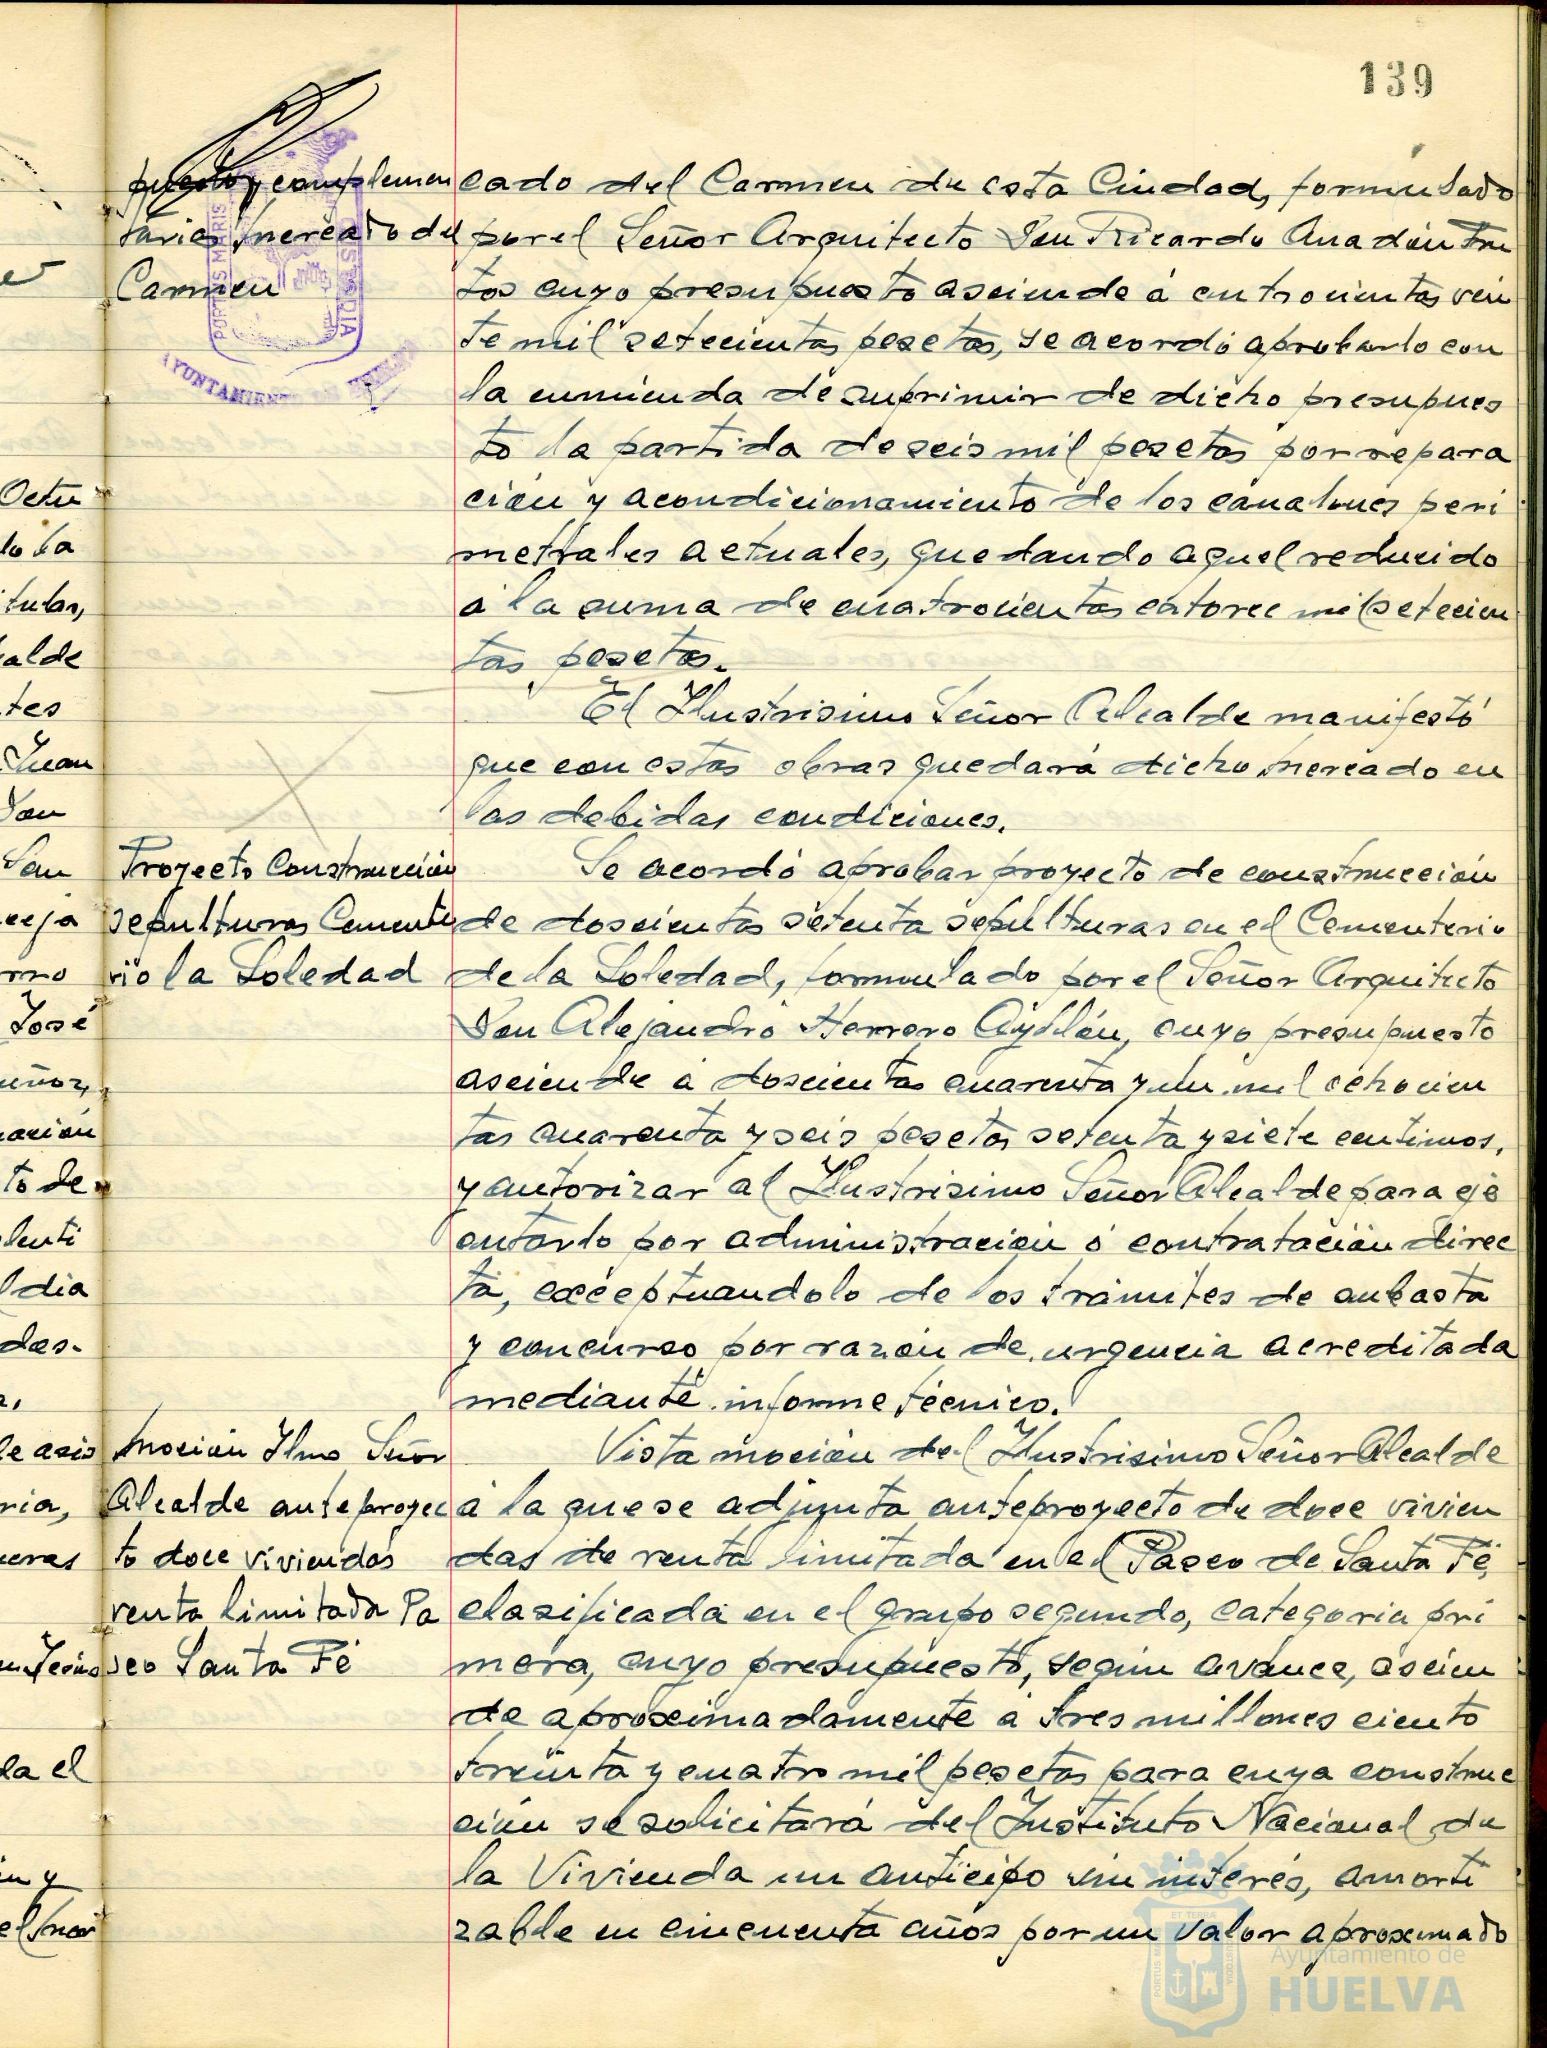 139
puesto y complemen
tarios Mercado del
Carmen
PORTUS MARIS
CUSTODIA
AYUNTAMIENTO DE HUELVA
cado del Carmen de esta Ciudad, formulado
por el Señor Arquitecto Don Ricardo Anadón Fru
tos cuyo presupuesto asciende á cuatrocientas vein
te mil setecientas pesetas, se acordó aprobarlo con
la enmienda de suprimir de dicho presupues
to la partida de seis mil pesetas por repara
ción y acondicionamiento de los canalones peri
metrales actuales, quedando aquel reducido
á la suma de cuatrocientas catorce mil setecien
tas pesetas.
El Ilustrisimo Señor Alcalde manifestó
que con estas obras quedará dicho Mercado en
las debidas condiciones.
Proyecto Construcción
sepulturas Cemente
rio la Soledad
Se acordó aprobar proyecto de construcción
de doscientas setenta sepulturas en el Cementerio
de la Soledad, formulado por el Señor Arquitecto
Don Alejandro Herrero Ayllón, cuyo presupuesto
asciende á doscientas cuarenta y un mil ochocien
tas cuarenta y seis pesetas setenta y siete centimos,
y autorizar al Ilustrisimo Señor Alcalde para eje
cutarlo por administración ó contratación direc
ta, exceptuandolo de los trámites de subasta
y concurso por razón de urgencia acreditada
mediante informe técnico.
Moción Ilmo Señor
Alcalde anteproyec
to doce viviendas
renta limitada Pa
seo Santa Fé
Vista moción del Ilustrisimo Señor Alcalde
á la que se adjunta anteproyecto de doce vivien
das de renta limitada en el Paseo de Santa Fé,
clasificada en el grupo segundo, categoria pri
mera, cuyo presupuesto, según avance, ascien
de aproximadamente á tres millones ciento
treinta y cuatro mil pesetas para cuya construc
ción se solicitará del Instituto Nacional de
la Vivienda un anticipo sin interés, amorti
zable en cincuenta años por un valor aproximado
Octu
itular,
alde
tes
Juan
Don
José
to de
l dia
das.
ria,
da el
Ayuntamiento de
HUELVA